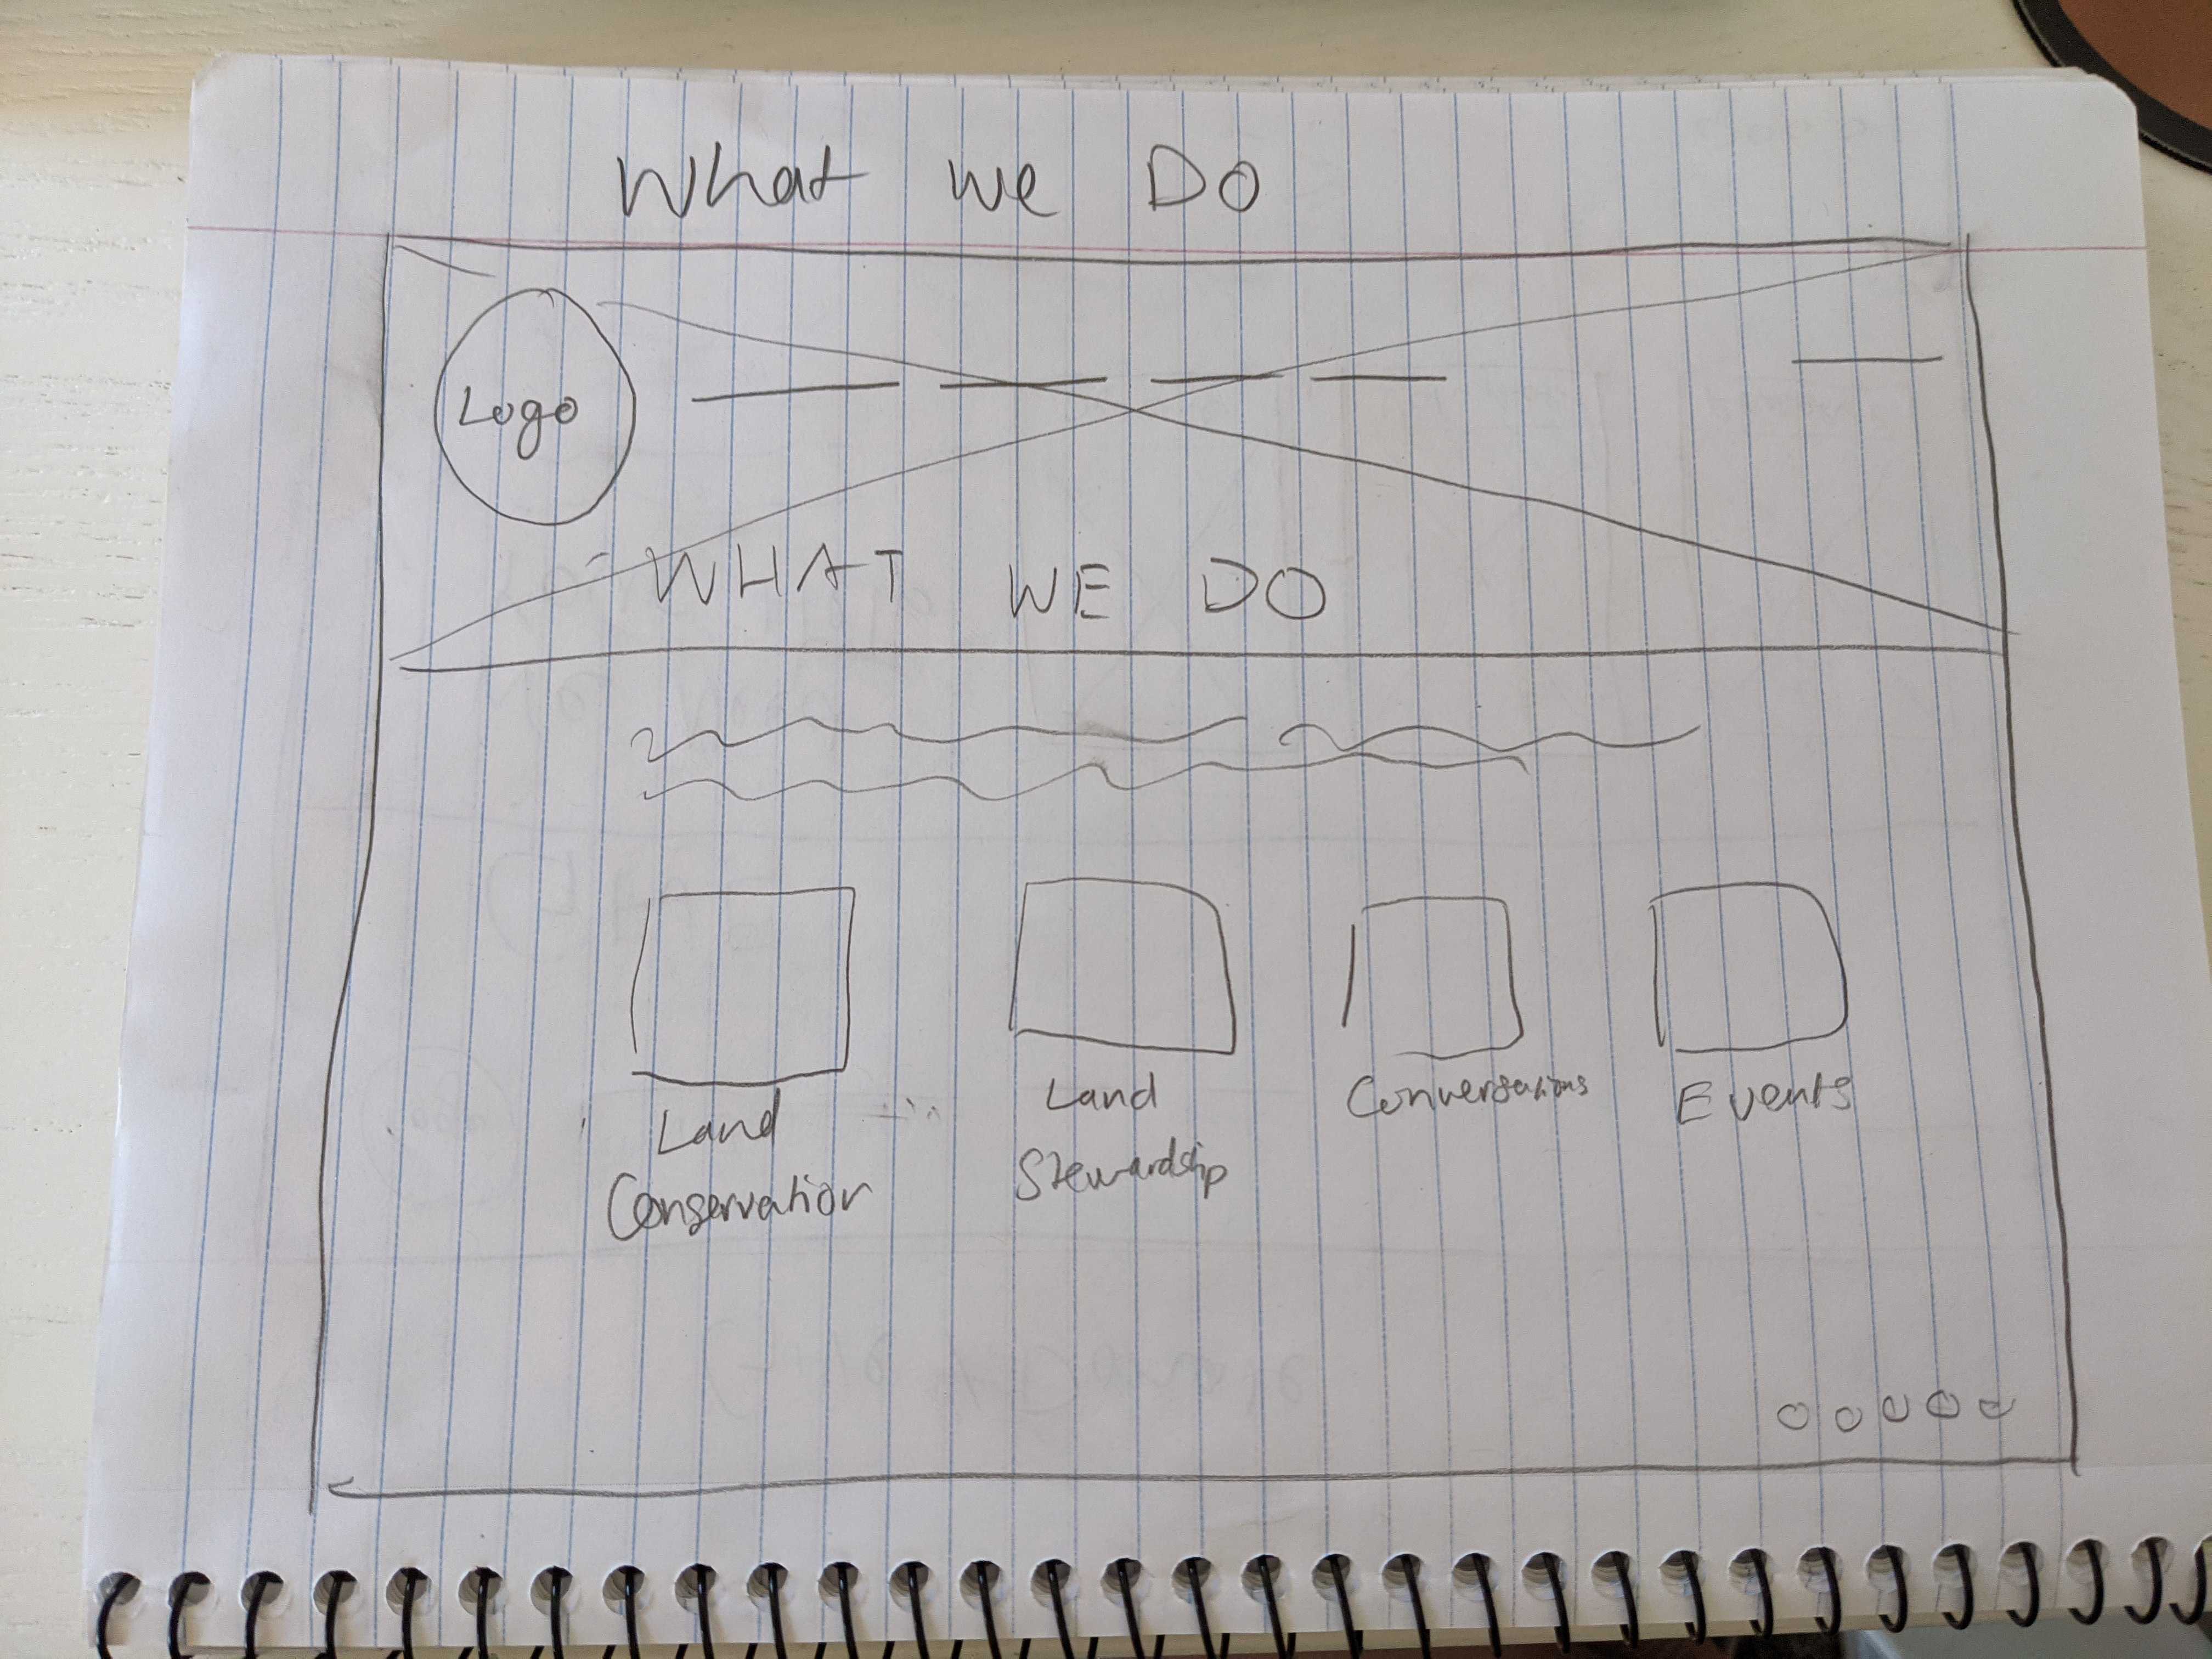 What We DO
Logo
WHAT WE DO
Land
Conservation
Land
Stewardship
Conversations
Events